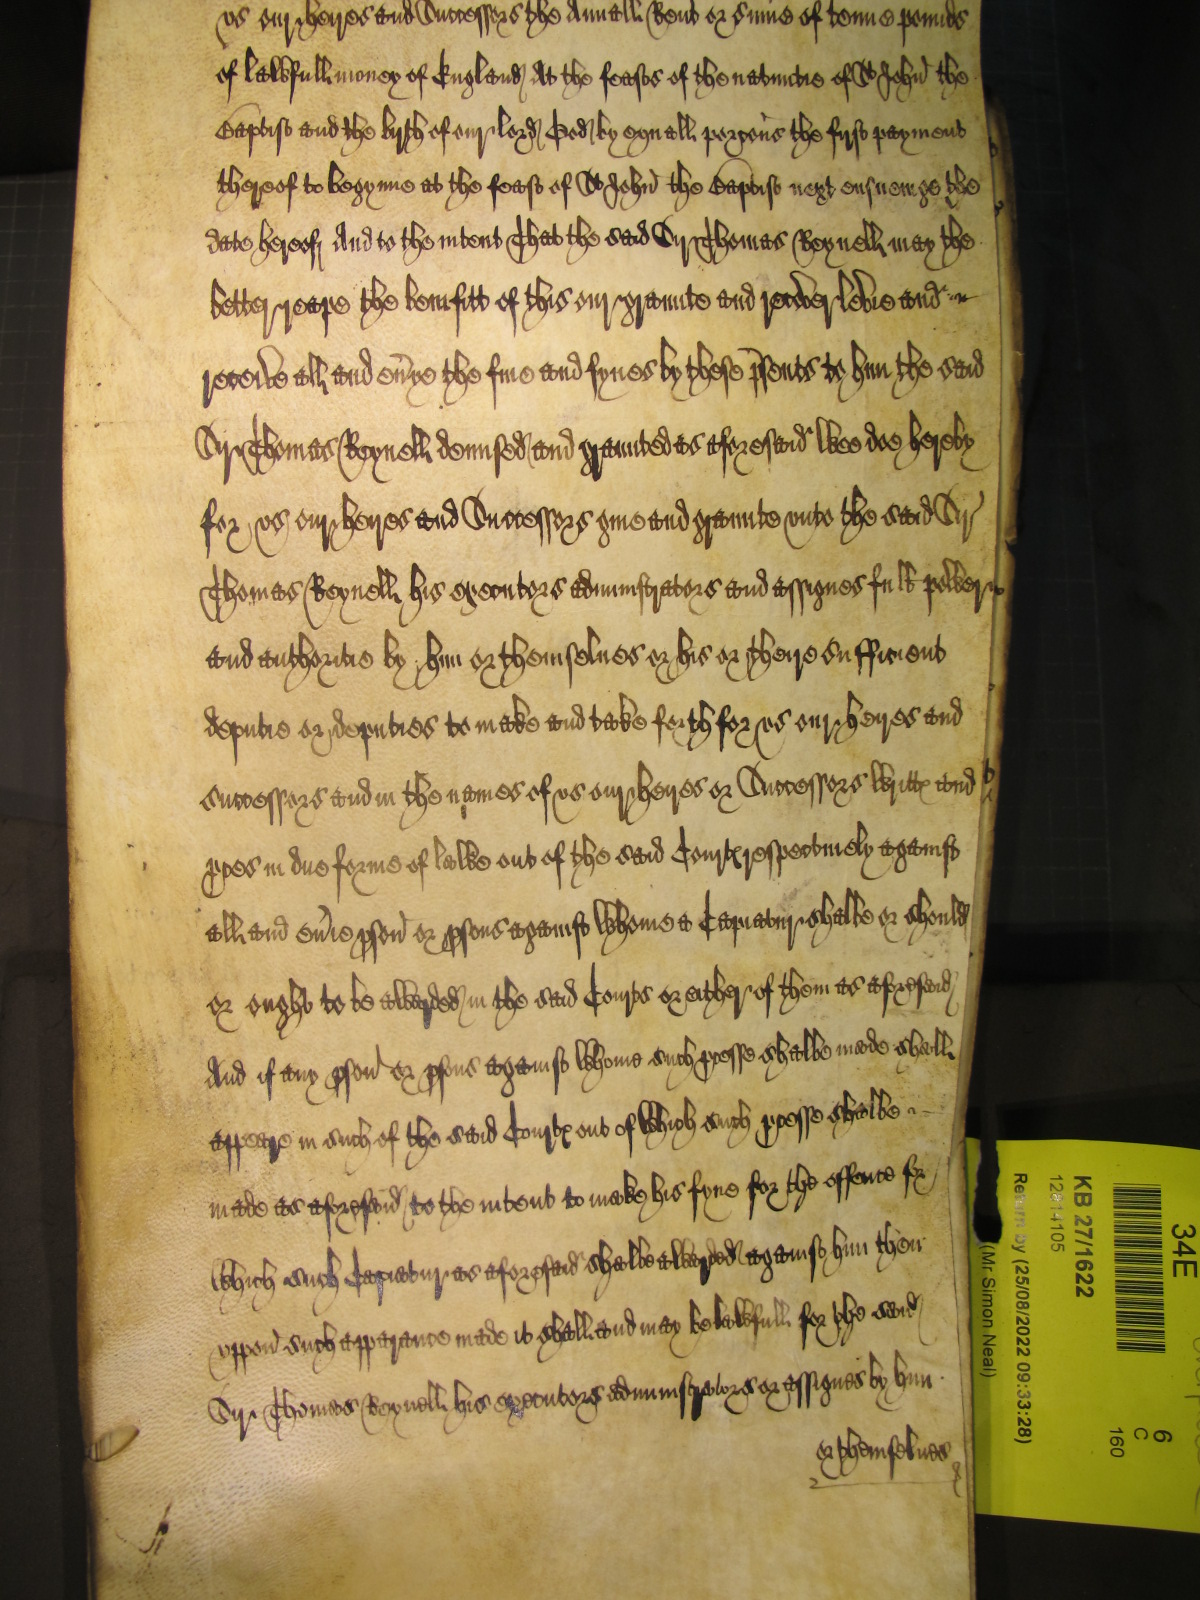 vs our heires and Successors the Annuall Rent or sume of tenne pounds
of lawfull money of England At the feasts of the natiuitie of St John the
Baptist and the birth of our lord God by equall porcons the first payment
thereof to begynne at the feast of St John the Baptist next ensueinge the
date hereof And to the intent That the said Sir Thomas Reynell may the
better reape the benifitt of this our graunte and recover levie and
receive all and euye the fine and fynes by these psents to him the said
Sir Thomas Reynell demised and graunted as aforesaid Wee doe hereby
for vs our heires and Successors giue and graunte vnto the said Sir
Thomas Reynell his executors administrators and assignes full power
and authoritie by him or themselues or his or theire sufficient
deputie or deputies to make and take forth for vs our heires and
successors and in the names of vs our heires or Successors Writts and
pces in due forme of lawe out of the said Courts respectiuely against
all and euie pson or psons against Whome a Capiatur shalbe or should
or ought to be awarded in the said Courts or either of them as aforesaid
And if any pson or psons against Whome such pcesse shalbe made shall
appeare in such of the said Courts out of Which such pcesse shalbe
made as aforesaid to the intent to make his fyne for the offence for
Which such Capiatur as aforesaid shalbe awarded against him then
vppon such apparance made it shall and may be lawfull for the said
Sir Thomas Reynell his executors administrators or assignes by him
or themselues
34E
6
C
160
KB 27/1622
12814105
Return by (25/08/2022 09:33:28)
(Mr. Simon Neal)